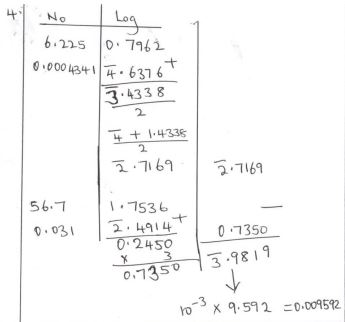 4. No Log
6.225 0.7962
0.0004341 4̅.6376 +
3̅.4338
2
4̅ + 1.4338
2
2̅.7169 2̅.7169
56.7 1.7536 —
0.031 2̅.4914 + 0.7350
0.2450 3̅.9819
× 3
0.7350
10⁻³ × 9.592 = 0.009592